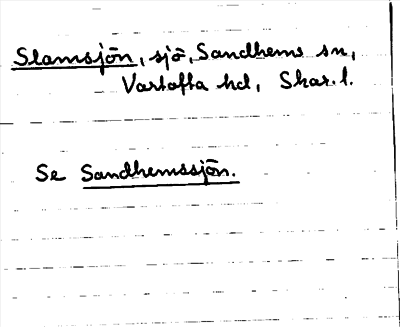 Slamsjön, sjö, Sandhems sn,
Vartofta hd, Skar. l.
Se Sandhemssjön.